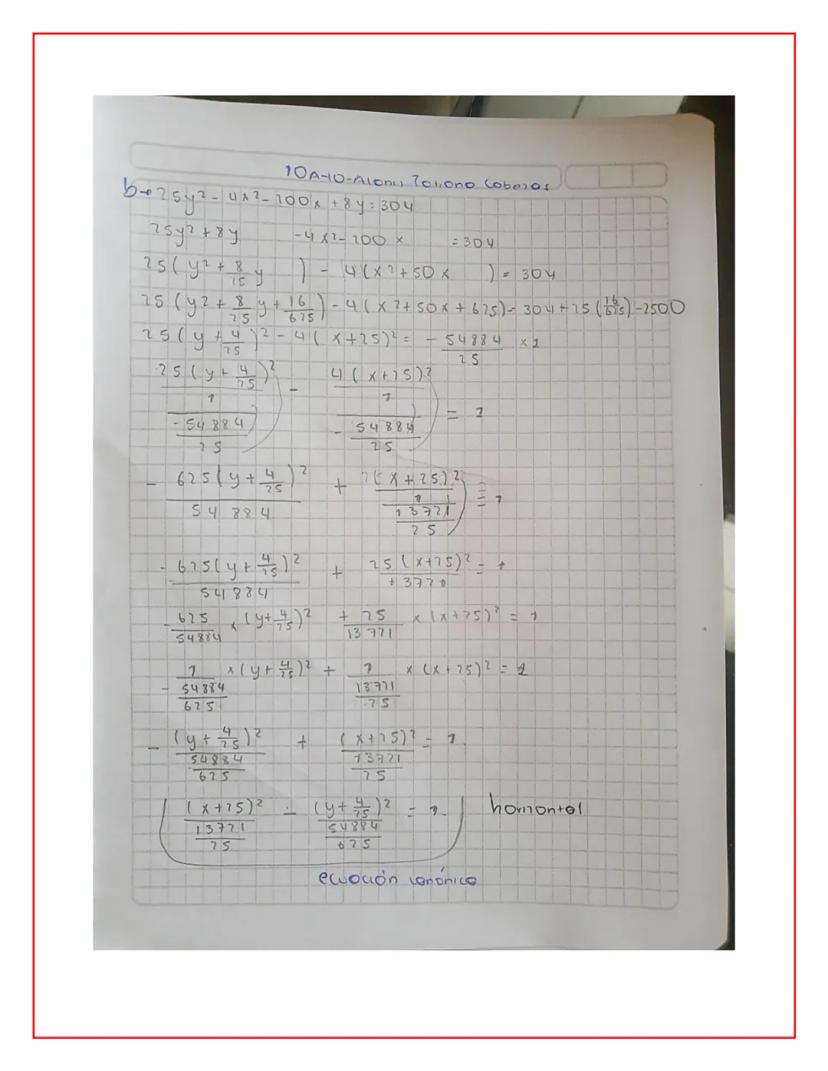 b→ 25y² - 4x² - 200x + 8y = 304
25y² + 8y   -4x² - 200x   = 304
25(y² + 8/25 y   ) - 4(x² + 50x   ) = 304
25(y² + 8/25 y + 16/625) - 4(x² + 50x + 625) = 304 + 25(16/625) - 2500
25(y + 4/25)² - 4(x+25)² = - 54884/25 × 1
25(y + 4/25)²/1 / -54884/25 - 4(x+25)²/1 / -54884/25 = 1
- 625(y + 4/25)²/54884 + (x+25)²/1 / 13721/25 = 1
- 625(y + 4/25)²/54884 + 25(x+25)²/13721 = 1
- 625/54884 × (y + 4/25)² + 25/13721 × (x+25)² = 1
- 1/54884/625 × (y + 4/25)² + 1/13721/25 × (x+25)² = 1
- (y + 4/25)²/54884/625 + (x+25)²/13721/25 = 1
(x+25)²/13721/25 - (y + 4/25)²/54884/625 = 1   horizontal
ecuación canónica